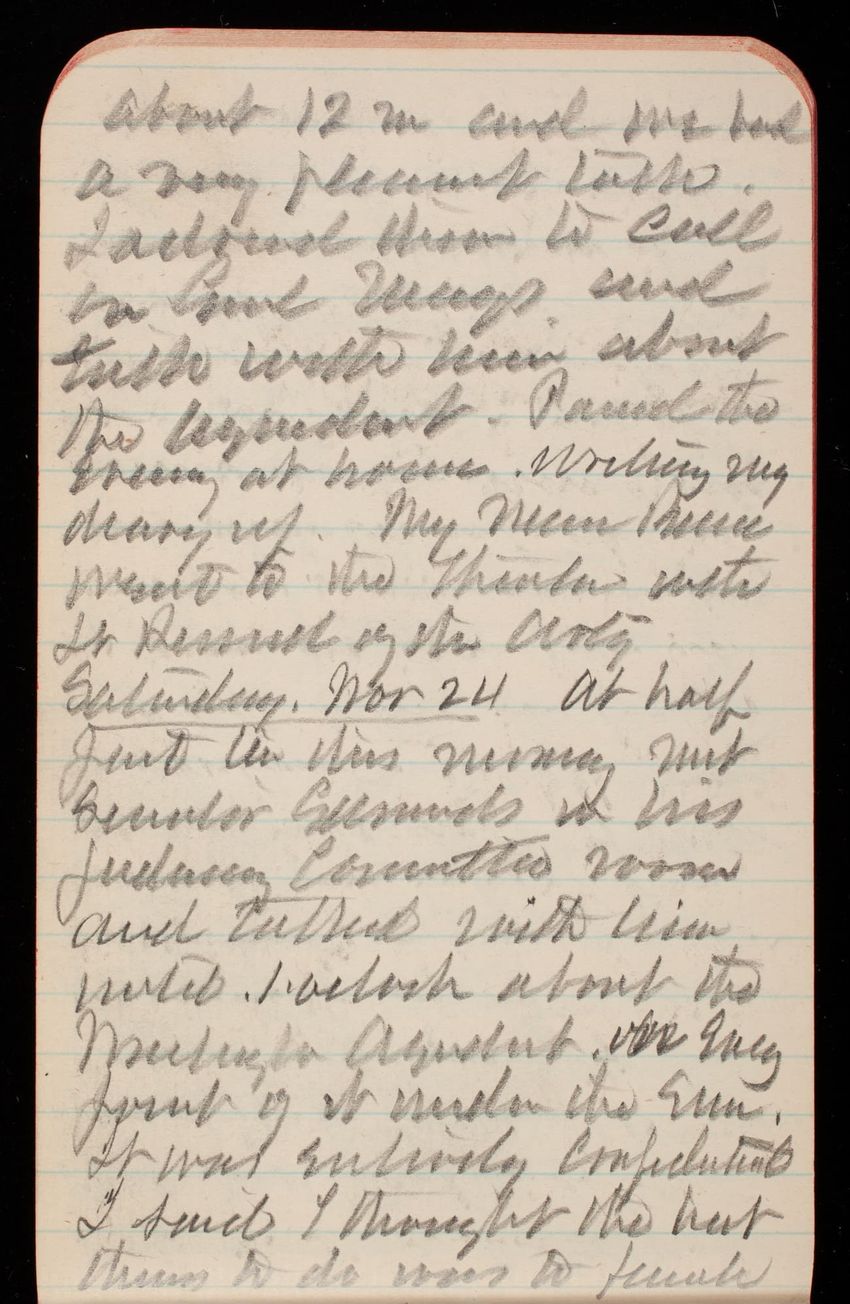 about 12 m and we had
a very pleasant talk.
I advised him to call
on Genl Meigs and
talk with him about
the Aqueduct. Passed the
evening at home. Writing my
diary up. My
went to the Theater with
Lt of the Arty
Saturday. Nov 24 At half
past ten this morning met
Senator Edmunds in his
Judiciary Committee room
and talked with him
until 1 oclock about the
Washington Aqueduct. every
point of it under the Sun.
It was entirely Confidential
I said I thought the best
thing to do was to